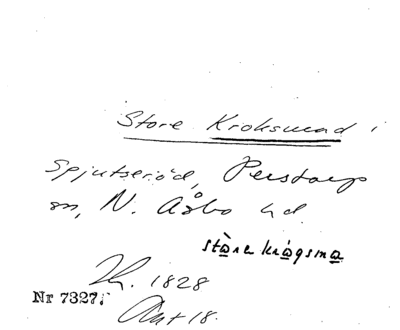 Store Kroksmad i
Spjutseröd, Perstorp
sn, N. Åsbo hd.
stå̀re krágsma
Lk. 1828
Nr 7327.
Akt 18.